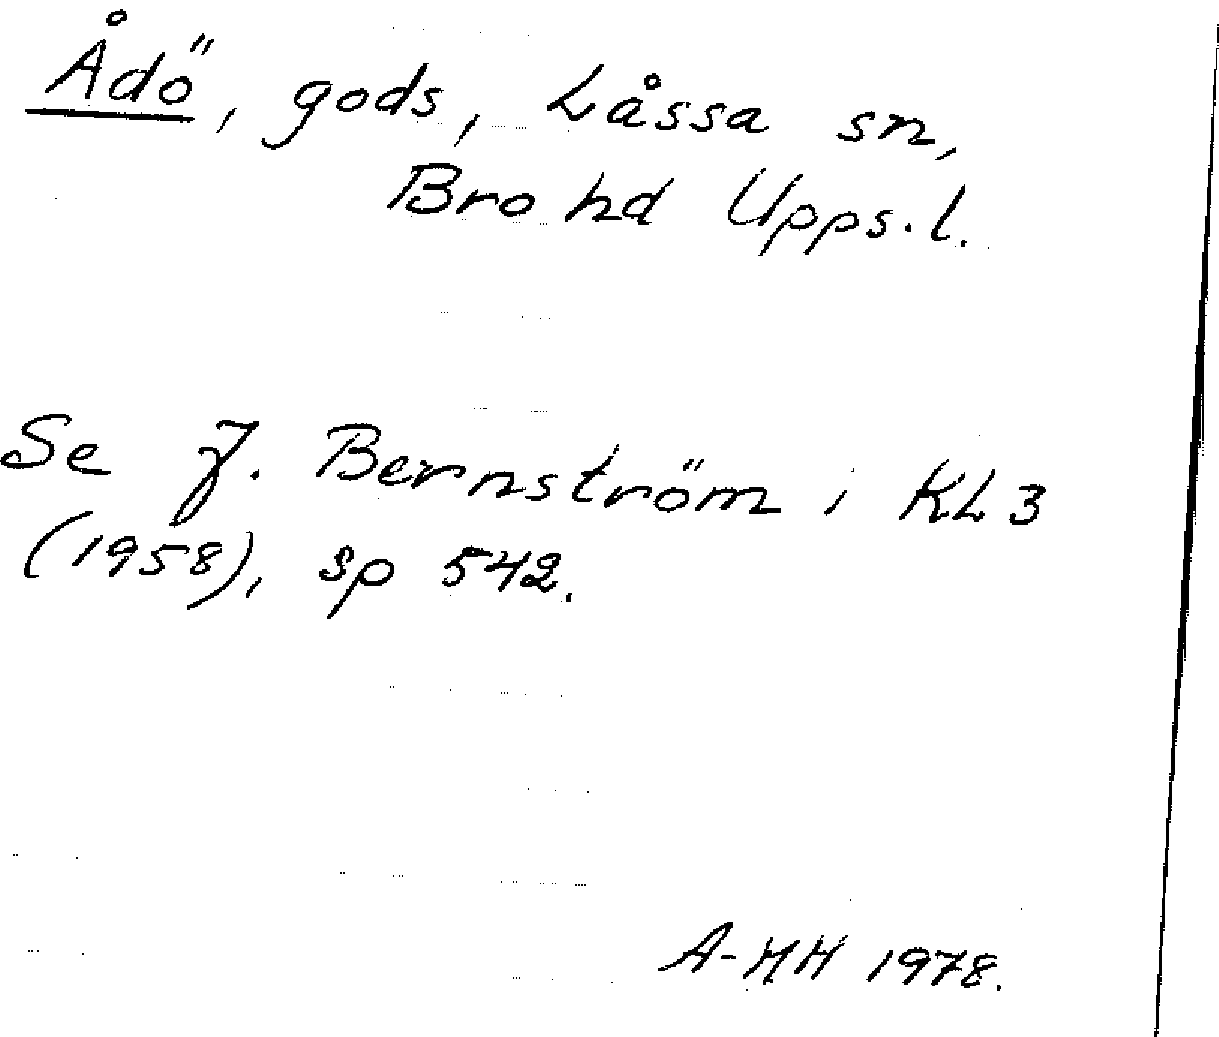 Ådö, gods, Låssa sn,
Bro hd Upps.l.
Se J. Bernström i KL 3
(1958), sp 542.
A-HH 1978.